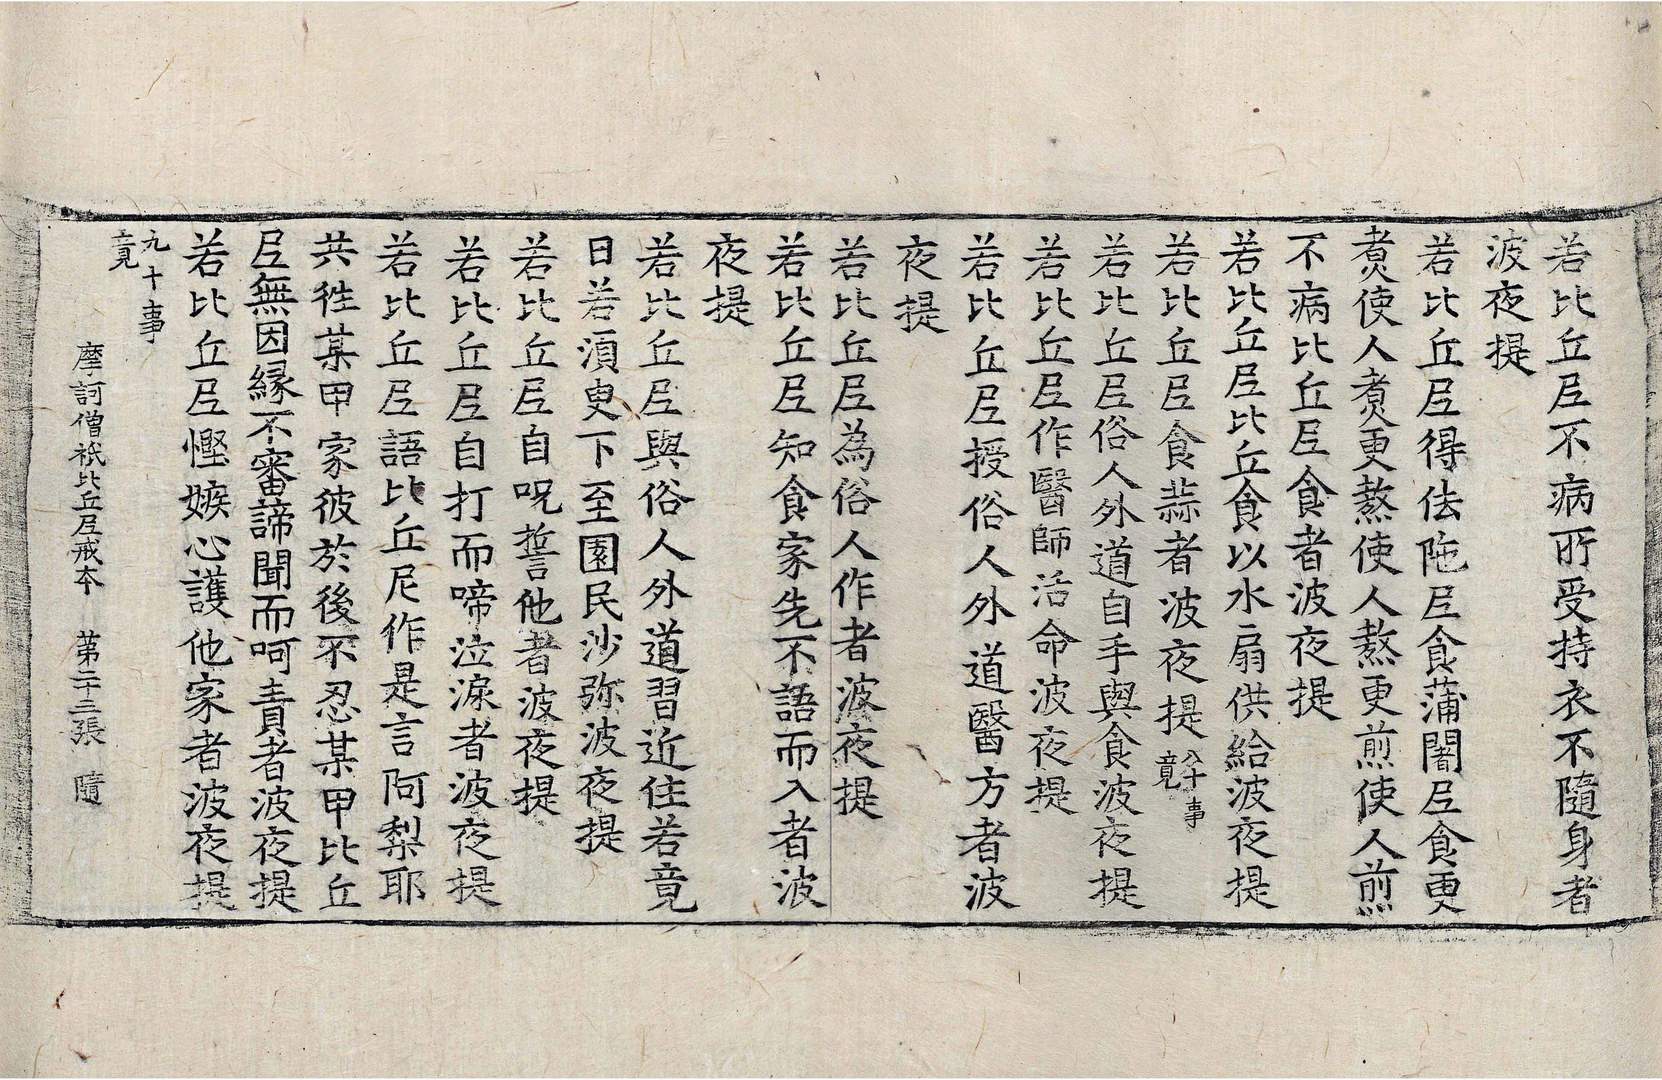 若比丘尼不病所受持衣不隨身者
波夜提
若比丘尼得佉陁尼食蒲闍尼食更
煑使人煑更熬使人熬更煎使人煎
不病比丘尼食者波夜提
若比丘尼比丘食以水扇供給波夜提
若比丘尼食蒜者波夜提八十事竟
若比丘尼俗人外道自手與食波夜提
若比丘尼作醫師活命波夜提
若比丘尼授俗人外道醫方者波
夜提
若比丘尼為俗人作者波夜提
若比丘尼知食家先不語而入者波
夜提
若比丘尼與俗人外道習近住若竟
日若湏臾下至園民沙弥波夜提
若比丘尼自呪誓他者波夜提
若比丘尼自打而啼泣淚者波夜提
若比丘尼語比丘尼作是言阿梨耶
共徃某甲家彼於後不忍某甲比丘
尼無因緣不審諦聞而呵責者波夜提
若比丘尼慳嫉心護他家者波夜提
九十事
竟
摩訶僧祇比丘尼戒本 第二十三張 隨